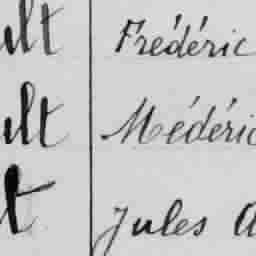 ult Frédéric
ult Médéric
t Jules A